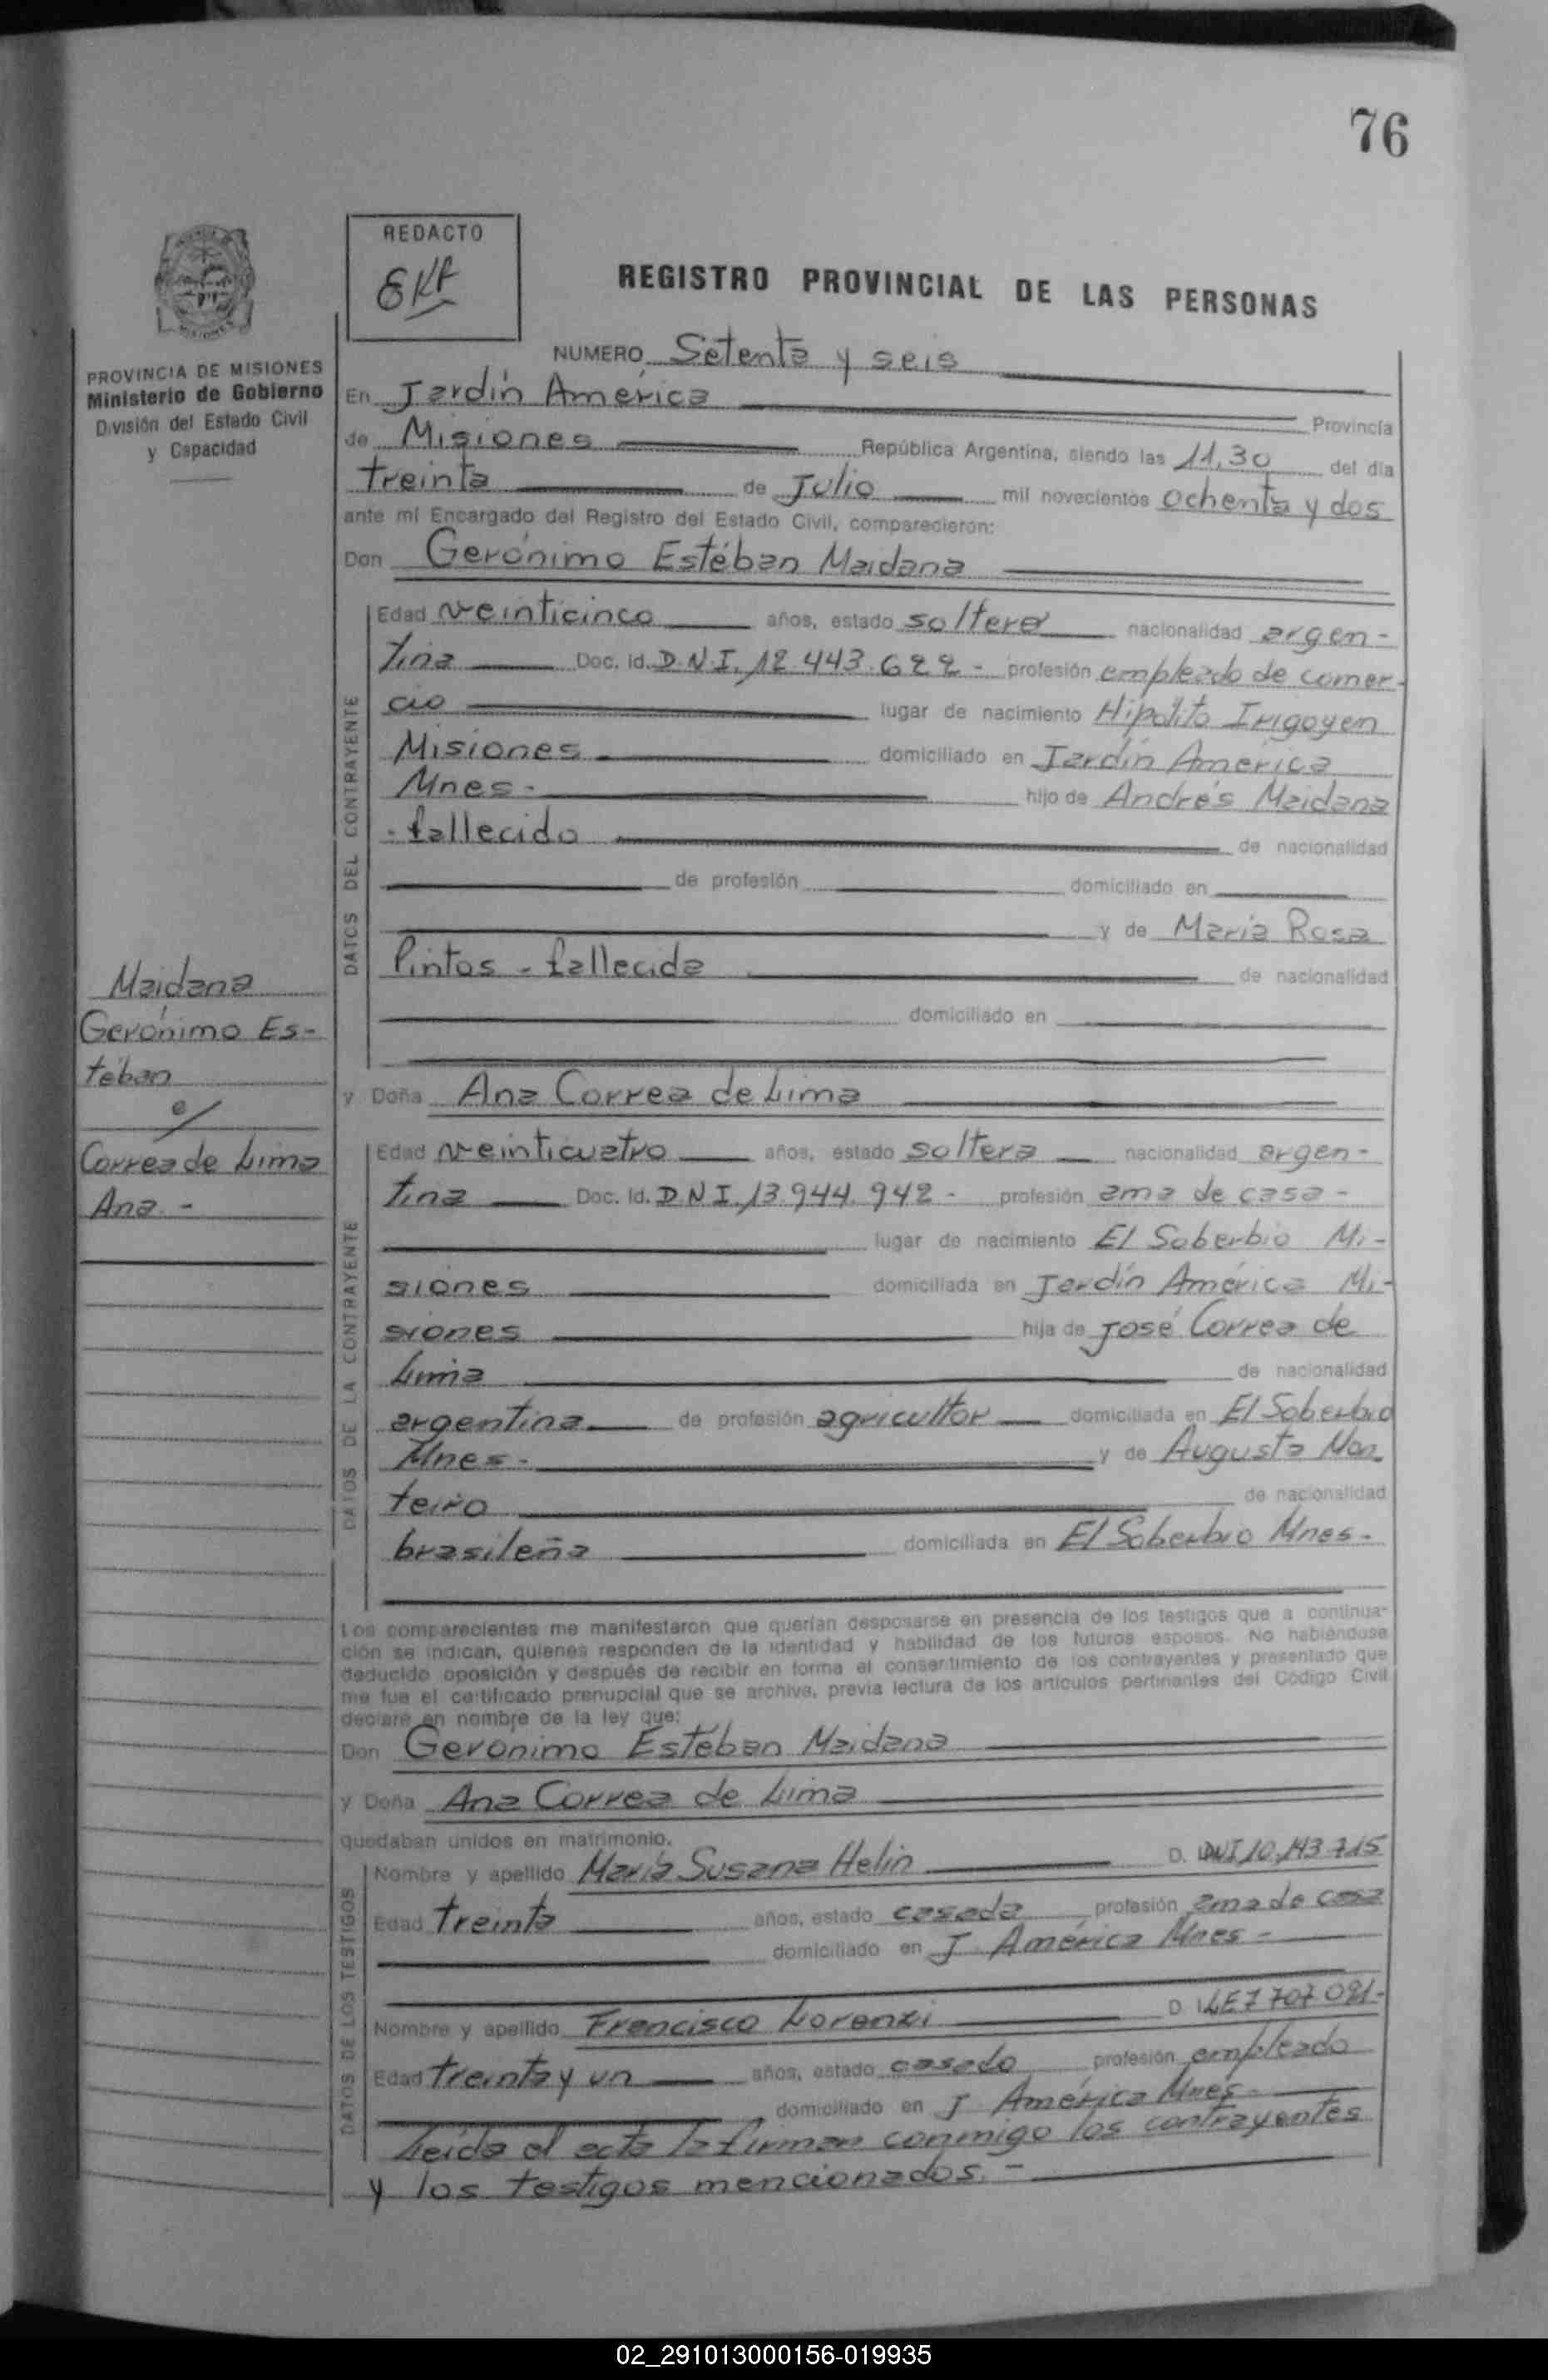 76
REDACTO
REGISTRO PROVINCIAL DE LAS PERSONAS
PROVINCIA DE MISIONES
Ministerio de Gobierno
División del Estado Civil
y Capacidad
NUMERO Setenta y seis
En Jardín América Provincia
de Misiones República Argentina, siendo las 11,30 del día
treinta de Julio mil novecientos ochenta y dos
ante mí Encargado del Registro del Estado Civil, comparecieron:
Don Gerónimo Estéban Maidana
DATOS DEL CONTRAYENTE
Edad veinticinco años, estado soltero nacionalidad argen-
tina Doc. Id. D.N.I. 12.443.622 - profesión empleado de comer-
cio lugar de nacimiento Hipólito Irigoyen
Misiones domiciliado en Jardín América
Mnes - hijo de Andrés Maidana
- fallecido de nacionalidad
de profesión domiciliado en
y de María Rosa
Pintos - fallecida de nacionalidad
domiciliado en
Maidana
Gerónimo Es-
téban
c/
Correa de Lima
Ana. -
y Doña Ana Correa de Lima
DATOS DE LA CONTRAYENTE
Edad veinticuatro años, estado soltera nacionalidad argen-
tina Doc. Id. D.N.I. 13.944.942 - profesión ama de casa -
lugar de nacimiento El Soberbio Mi-
siones domiciliada en Jardín América Mi-
siones hija de José Correa de
Lima de nacionalidad
argentina de profesión agricultor domiciliada en El Soberbio
Mnes - y de Augusta Mon
teiro de nacionalidad
brasileña domiciliada en El Soberbio Mnes -
Los comparecientes me manifestaron que querían desposarse en presencia de los testigos que a continua-
ción se indican, quienes responden de la identidad y habilidad de los futuros esposos. No habiéndose
deducido oposición y después de recibir en forma el consentimiento de los contrayentes y presentado que
me fue el certificado prenupcial que se archiva, previa lectura de los artículos pertinentes del Código Civil
declaré en nombre de la ley que:
Don Gerónimo Estéban Maidana
y Doña Ana Correa de Lima
quedaban unidos en matrimonio.
DATOS DE LOS TESTIGOS
Nombre y apellido María Susana Helin D. I. DNI 10.143.715
Edad treinta años, estado casada profesión ama de casa
domiciliado en J. América Mnes -
Nombre y apellido Francisco Lorenzi D. I. LE 7 707 091 -
Edad treinta y un años, estado casado profesión empleado
domiciliado en J América Mnes -
Leída el acta la firman conmigo los contrayentes
y los testigos mencionados. -
02_291013000156-019935